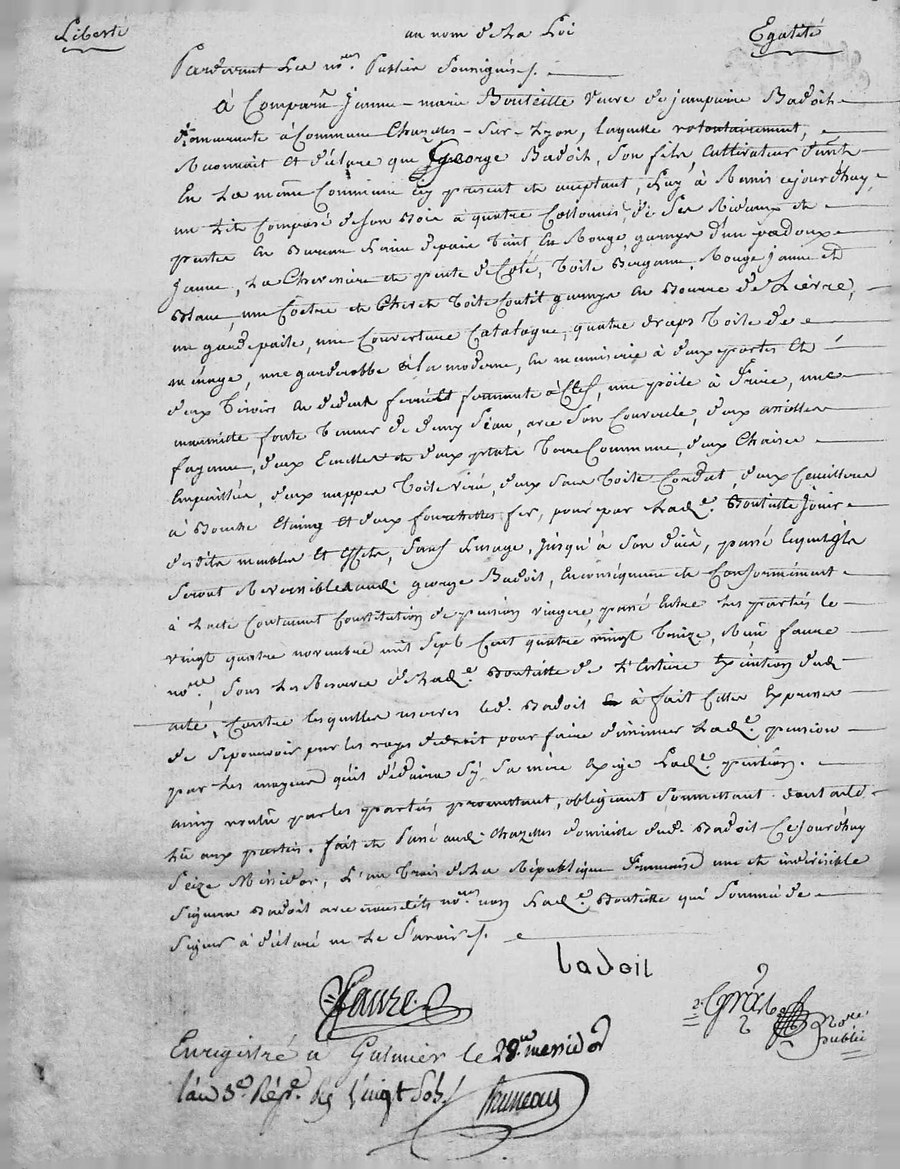 Liberté au nom de la Loi Egalité
Pardevant Les no.res Public Soussignés /. 
à Comparu Jeanne-marie Bouteille veuve de jean Badoit
demeurante à Commune Chazelles-Sur-Lyon, laquelle volontairement,
Reconnait et déclare que George Badoit, Son fils, Cultivateur
En La même Commune icy présent et acceptant, Luy à Remis cejourdhuy,
un Lit Composé de Son Bois à quatre Collonnes, de Ses Rideaux et
en Laine Teint En Rouge, garnys d'un padoux
jaune, La et pente de Coté, Toile Bergame, Rouge jaune et
Blanc, une Coetre et Chevet Toile Coutil garnys en Bourre de Lievre,
un gardepaille, une Couverture Catalogne, quatre draps Toile de
ménage, une garderobbe à La moderne, En menuiserie à deux portes Et
deux Tiroirs fermante à Clef, une poële à Frire, une
marmitte fonte Tenant de demy Seau, avec Son Couvercle, deux assiettes
fayance, deux Ecuelles et deux plats Terre Commune, deux Chaises
Empaillées, deux nappes Toile, deux Sacs Toile, deux Cueillères
à Bouche Etaing Et deux fourchettes fer, pour par Lad.e Bouteille Jouir
desdits meubles Et Effets, Sans, Jusqu'à Son décès, passé lequel ils
Seront Reversibles aud. george Badoit, En conséquence et Conformément
à Lacte Contenant Constitution de pension viagère, passé Entre Les parties le
vingt quatre novembre mil Sept Cent quatre vingt Treize, Faure
no.re, Sous La Reserve de Lad.e Bouteille de L'Entière Exécution dud.
acte, Contre lesquelles led. Badoit à fait Celles Expresses
de Se pourvoir par les voyes de droit pour faire diminuer Lad.e pension
par Les moyens qu'il Sy Sa mère Exige Lad.e pension.
ainsy voulu par les parties promettant, obligeant Soumettant. dont acte
Lu aux parties. fait et Passé aud. Chazelles domicile dud. Badoit Cejourdhuy
Seize Messidor, L'an Trois de La République Française une et indivisible
Signera Badoit avec nousdits no.res non Lad.e Bouteille qui Sommée de
Signer à déclaré ne Le Savoir /.
badoit
Faure
no.re
public
Enregistré a Galmier le 28.me messidor
l'an 3.e Rép.e Rç Vingt Sols /.